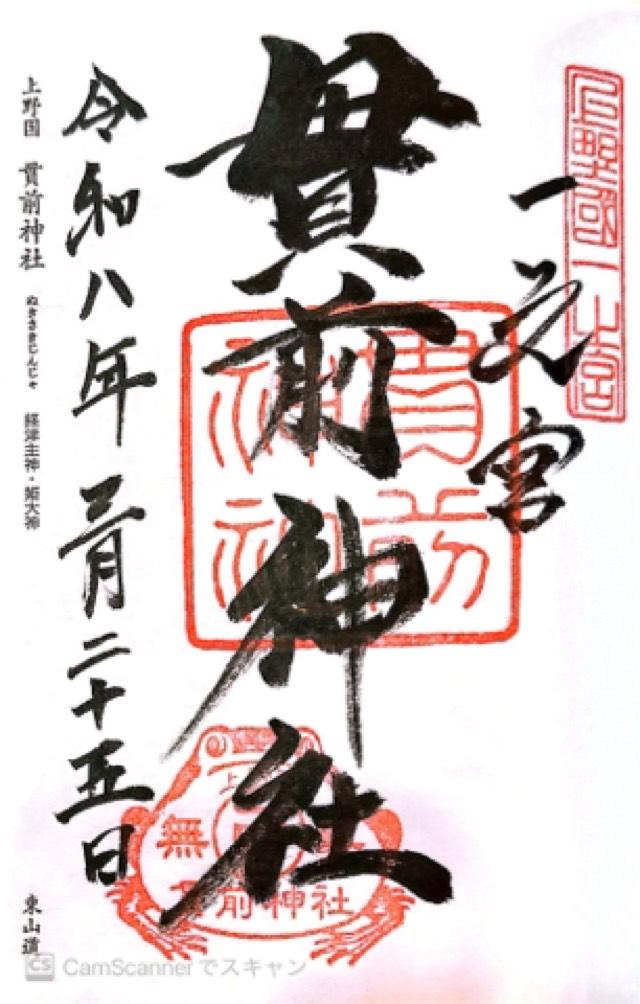 上野國一之宮
一之宮
貫前神社
貫前神社
上
無
貫前神社
令和八年三月二十五日
上野国 貫前神社 ぬきさきじんじゃ 経津主神・姫大神 東山道
CS CamScannerでスキャン